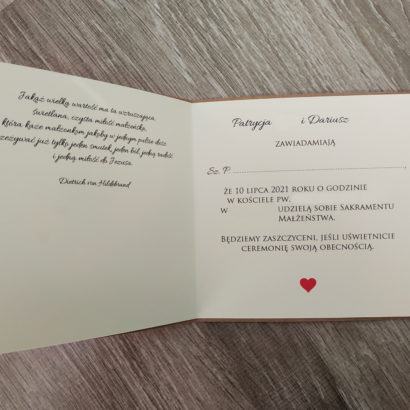 Jakąż wielką wartość ma ta wzruszająca,
świetlana, czysta miłość małżeńska,
która każe małżonkom jakoby w jednym pulsie dusz
przeżywać już tylko jeden smutek, jeden ból, jedną radość
i jedną miłość do Jezusa.
Dietrich von Hildebrand
Patrycja i Dariusz
ZAWIADAMIAJĄ
Sz. P.
ŻE 10 LIPCA 2021 ROKU O GODZINIE
W KOŚCIELE PW.
W UDZIELĄ SOBIE SAKRAMENTU
MAŁŻEŃSTWA.
BĘDZIEMY ZASZCZYCENI, JEŚLI UŚWIETNICIE
CEREMONIĘ SWOJĄ OBECNOŚCIĄ.